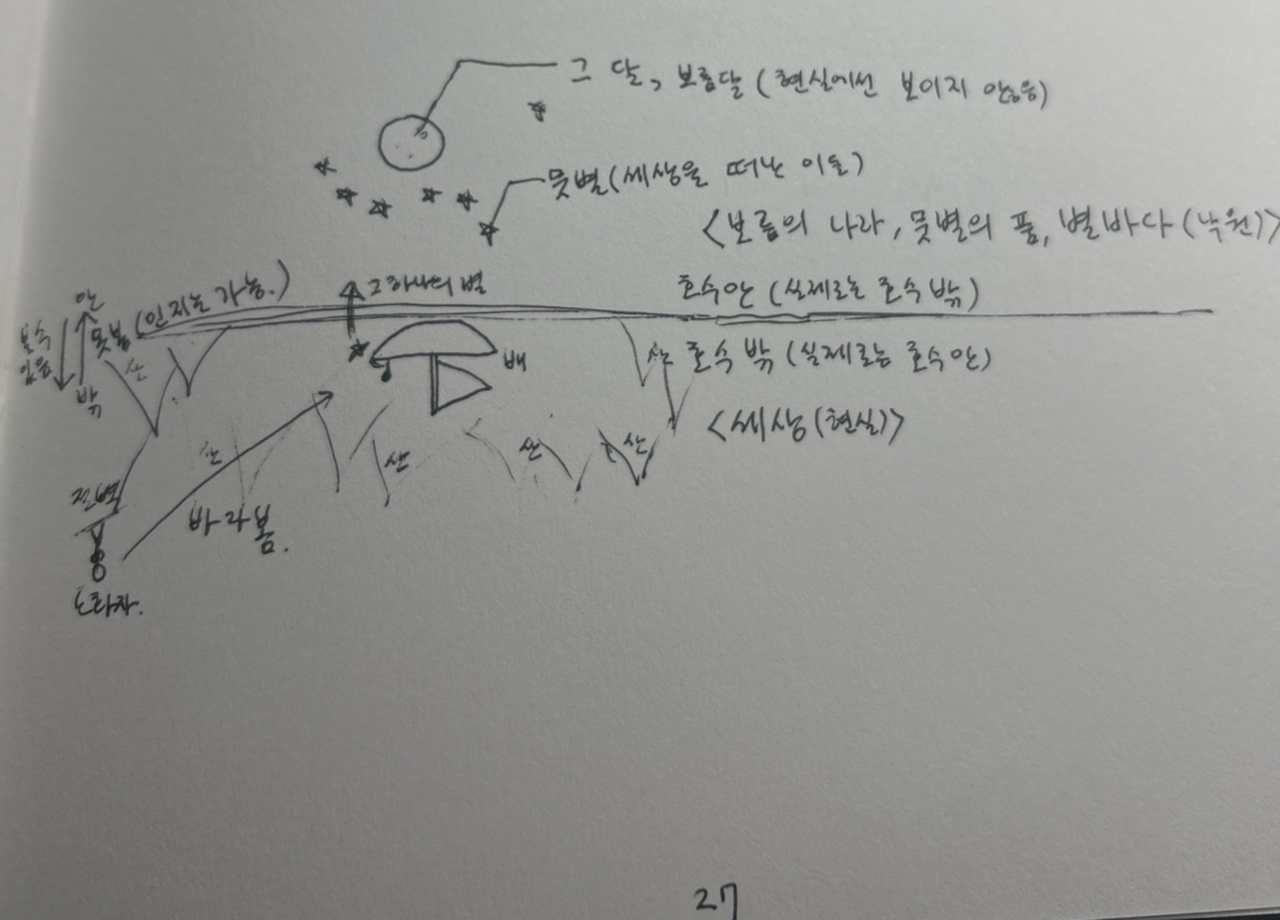 그 달, 보름달 (현실에선 보이지 않음)
뭇별(세상을 떠난 이들)
<보름의 나라, 뭇별의 품, 별바다 (낙원)>
그 하나의 별
호수안 (실제로는 호수 밖)
안
못봄 (인지는 가능.)
볼 수 있음
밖
산
배
산
호수 밖 (실제로는 호수안)
<세상(현실)>
산
산
산
산
절벽
바라봄.
노화자.
27